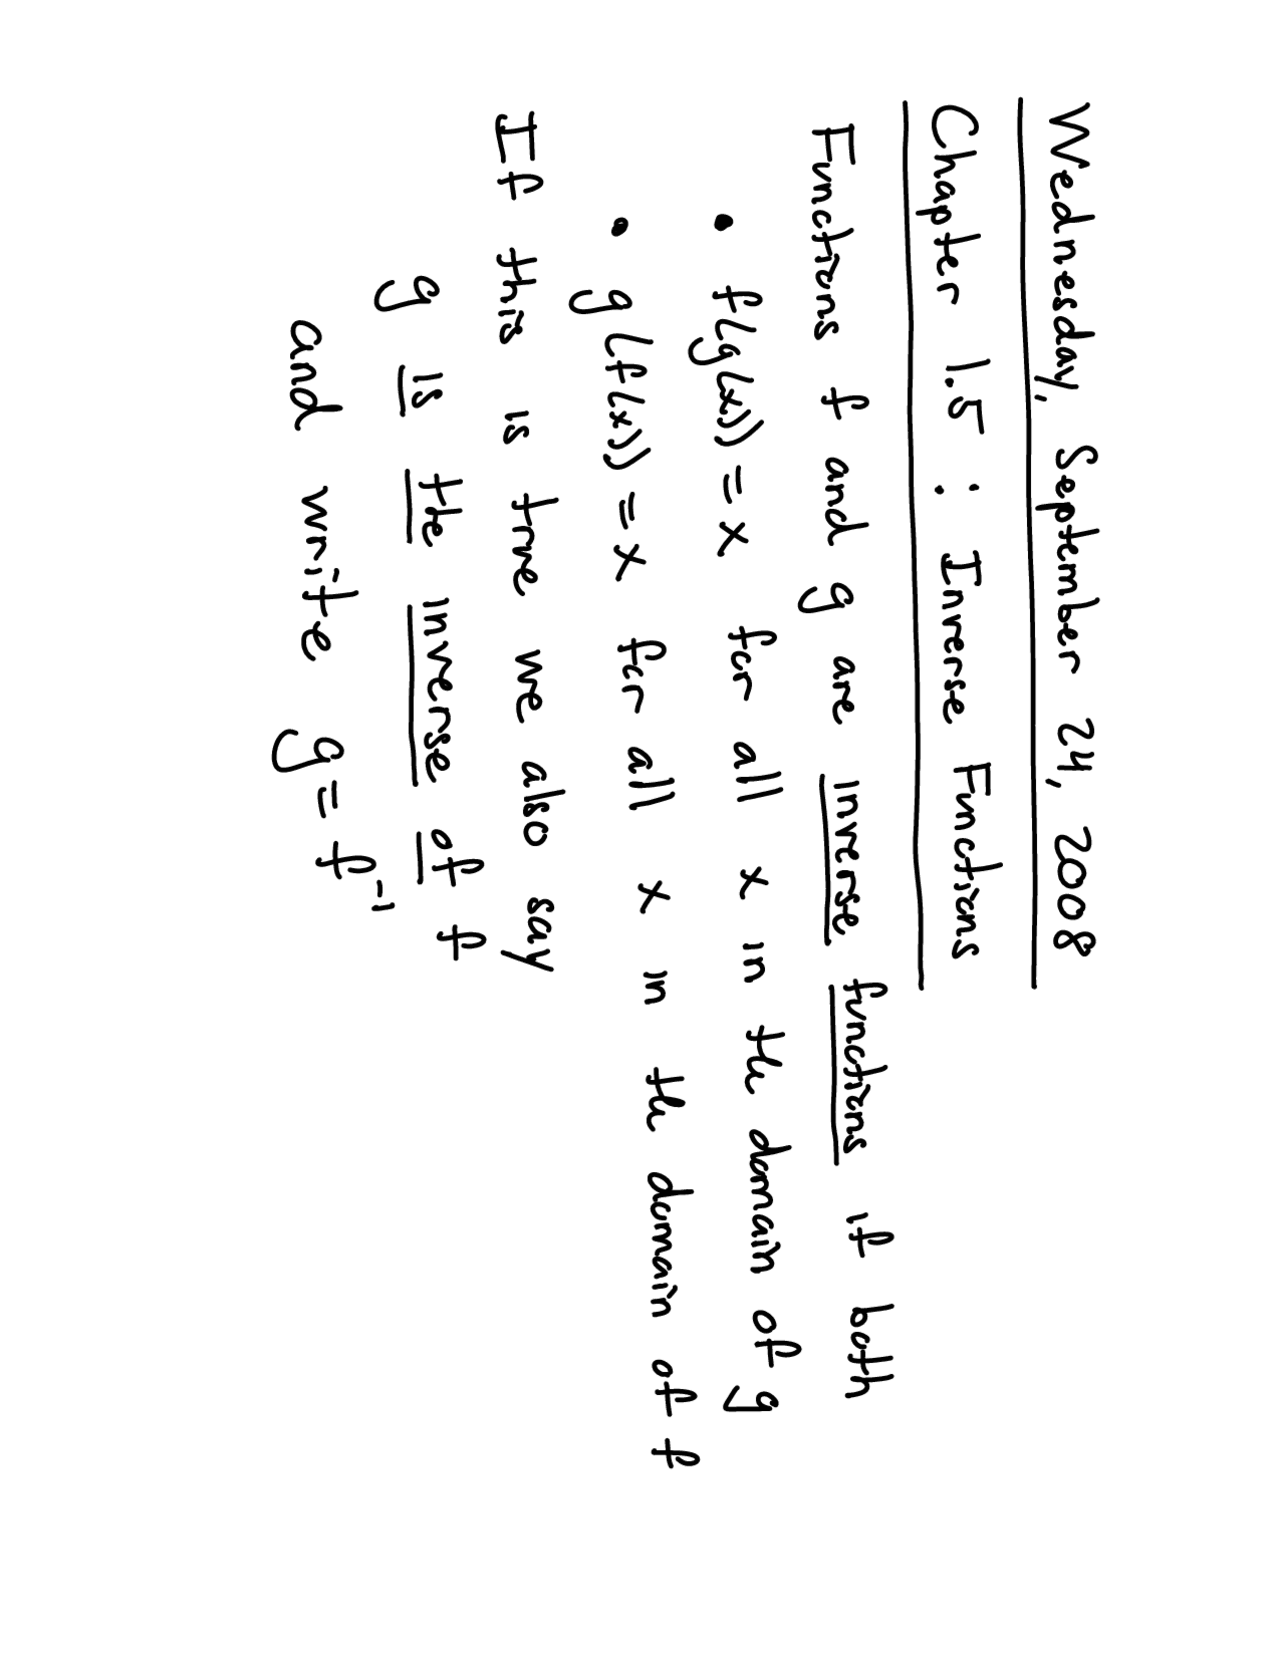 Wednesday, September 24, 2008
Chapter 1.5 : Inverse Functions
Functions f and g are inverse functions if both
• f(g(x)) = x for all x in the domain of g
• g(f(x)) = x for all x in the domain of f
If this is true we also say
g is the inverse of f
and write g = f⁻¹